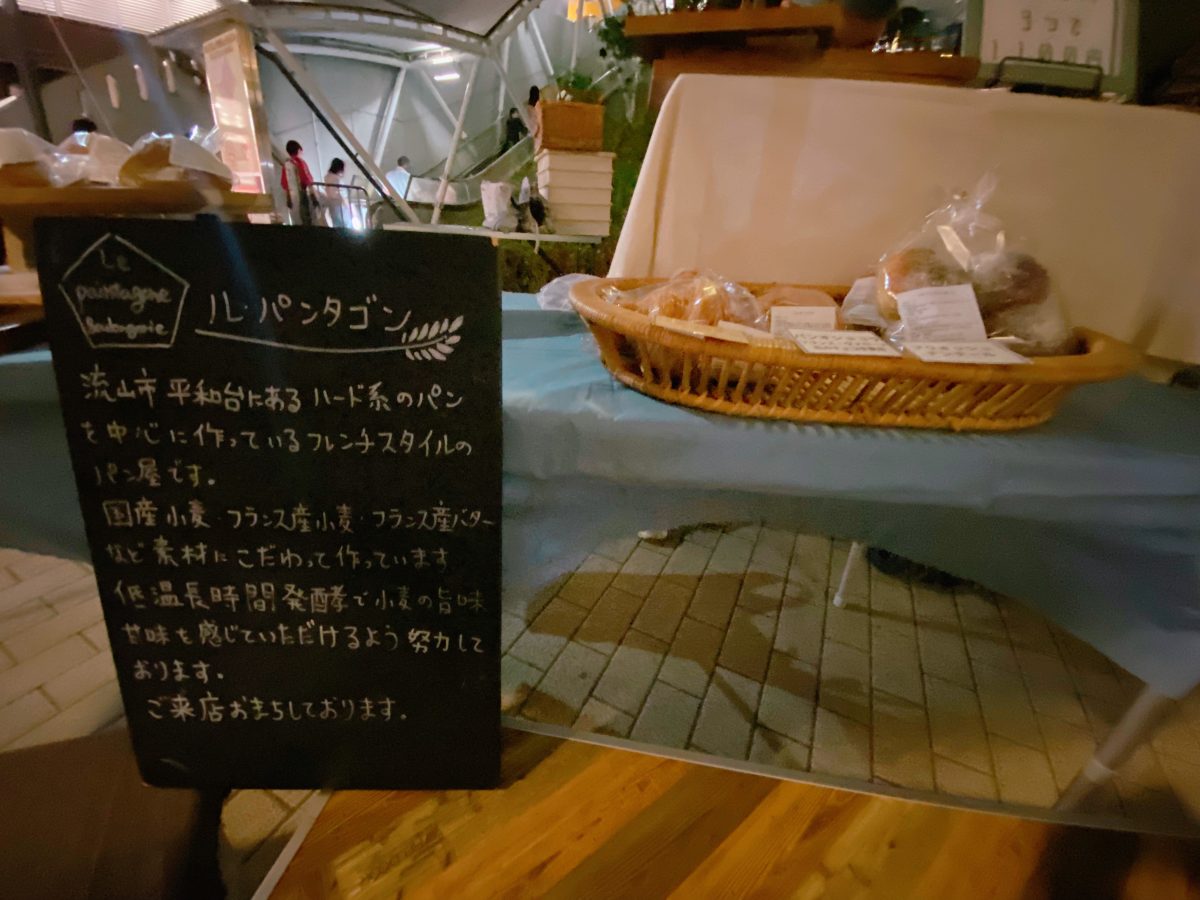 Le
painttagone
Boulangerie
ル・パンタゴン
流山市 平和台にある ハード系のパン
を中心に作っているフレンチスタイルの
パン屋です。
国産小麦・フランス産小麦・フランス産バター
など素材にこだわって作っています
低温長時間発酵で小麦の旨味
甘味を感じていただけるよう努力して
おります。
ご来店おまちしております。